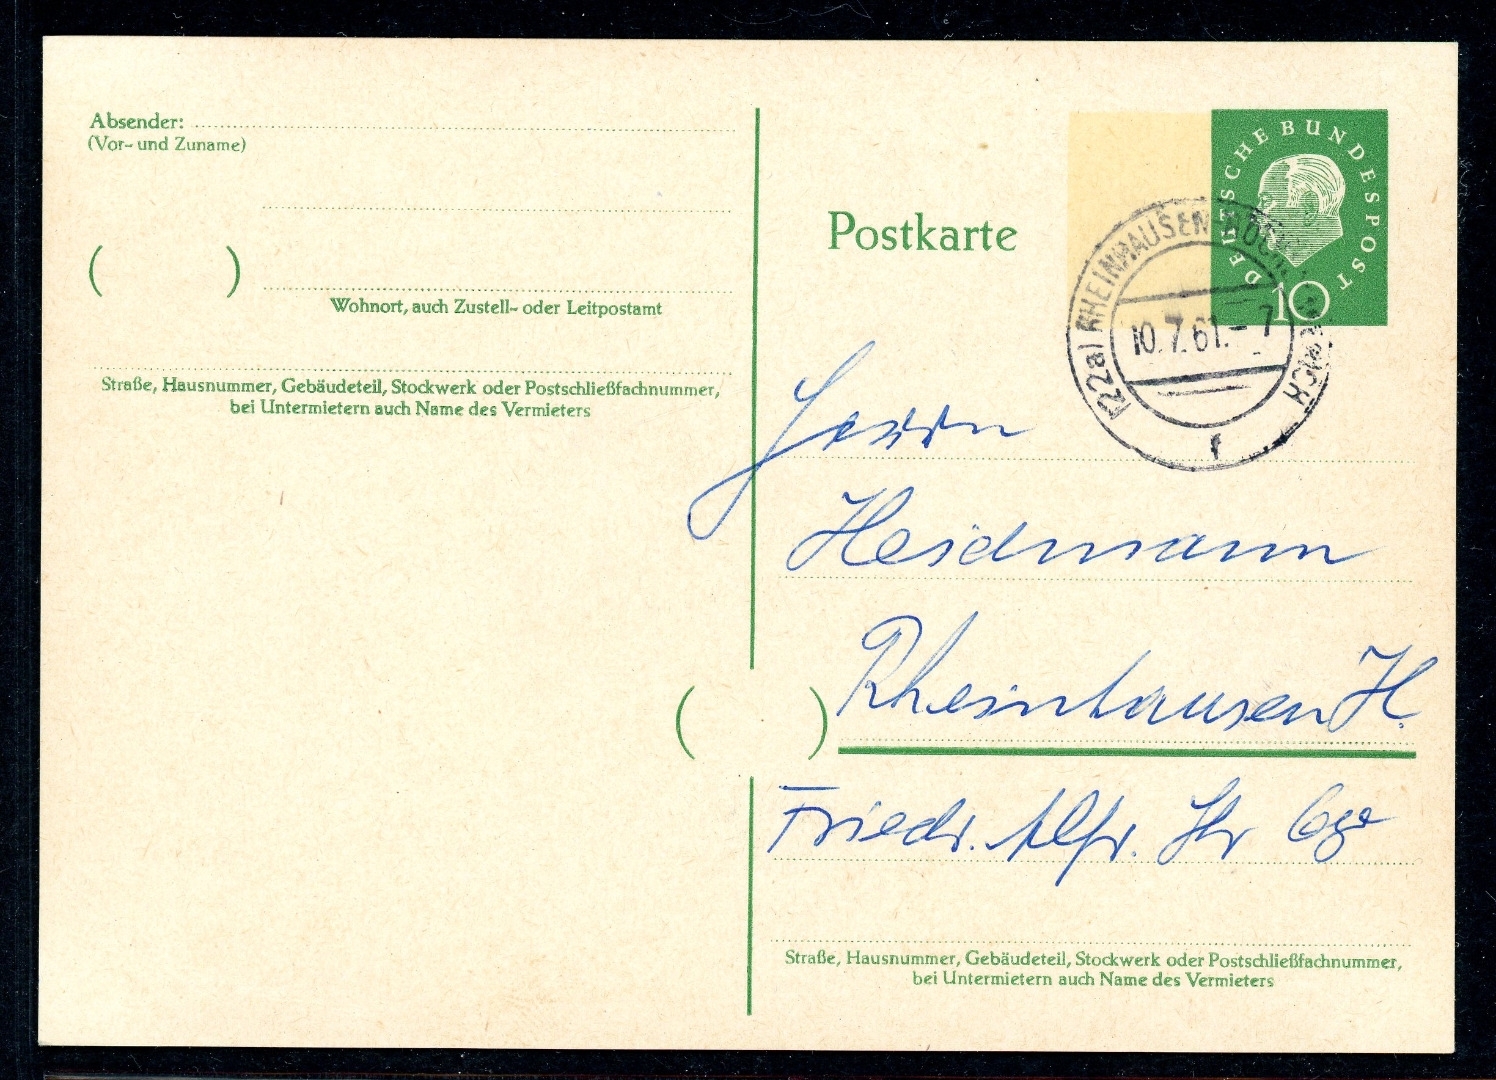 Absender:
(Vor- und Zuname)
( )
Wohnort, auch Zustell- oder Leitpostamt
Straße, Hausnummer, Gebäudeteil, Stockwerk oder Postschließfachnummer,
bei Untermietern auch Name des Vermieters
Postkarte
DEUTSCHE BUNDESPOST
10
(22a) RHEINHAUSEN
10.7.61.-7
f
Herrn
Heidmann
Rheinhausen H.
( )
Friedr. Alfr. Str
Straße, Hausnummer, Gebäudeteil, Stockwerk oder Postschließfachnummer,
bei Untermietern auch Name des Vermieters